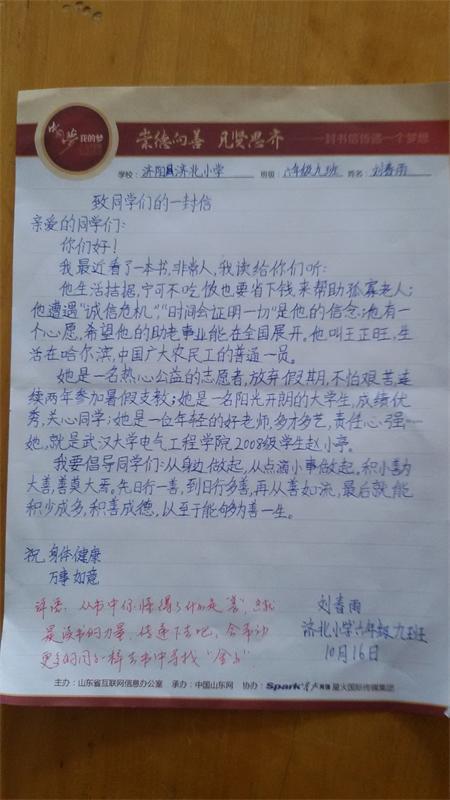 中国梦 我的梦
崇德向善 见贤思齐
一封书信传递一个梦想
学校：济阳县济北小学 班级：六年级九班 姓名：刘春雨
致同学们的一封信
亲爱的同学们：
你们好！
我最近看了一本书，非常人，我读给你们听：
他生活拮据，宁可不吃饭也要省下钱来帮助孤寡老人；
他遭遇“诚信危机”，“时间会证明一切”是他的信念；他有一
个心愿，希望他的助老事业能在全国展开。他叫王正旺，生
活在哈尔滨，中国广大农民工的普通一员。
她是一名热心公益的志愿者，放弃假期，不怕艰苦连
续两年参加暑假支教；她是一名阳光开朗的大学生，成绩优
秀，关心同学；她是一位年轻的好老师，多才多艺，责任心强…
她，就是武汉大学电气工程学院2008级学生赵小亭。
我要倡导同学们：从身边做起，从点滴小事做起，积小善为
大善，善莫大焉。先日行一善，到日行多善，再从善如流，最后就能
积少成多，积善成德，以至于能够为善一生。
祝 身体健康
万事如意
刘春雨
济北小学六年级九班
10月16日
评语：从书中你懂得了什么是“善”，
是读书的力量，传递下去吧，会带动
更多的同学一样去书中寻找“金子”.
主办：山东省互联网信息办公室 承办：中国山东网 协办：Spark 星火国际传媒集团